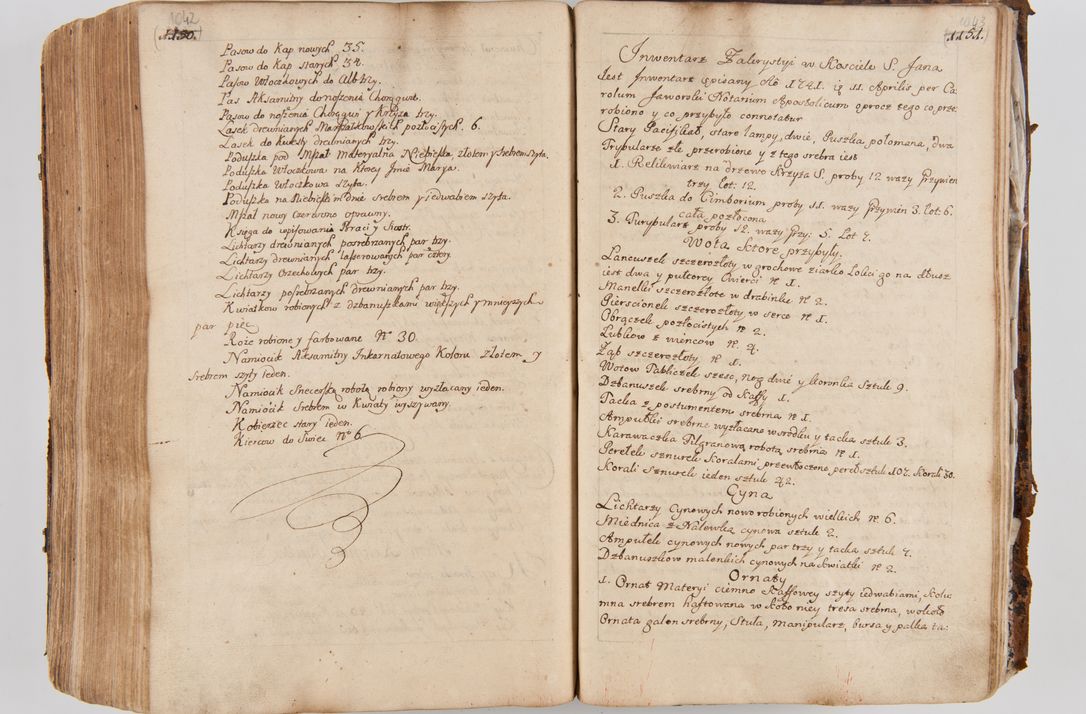 1042
1150.
Pasow do Kap nowych 35.
Pasow do Kap starych 34.
Pasow Włoczkowych do Alb trzy.
Pas Aksamitny do noszenia Chorągwi.
Pasow do noszenia Chorągwi y Krzyża trzy.
Lasek drewnianych Marszałkowskich pozłocistych 6.
Lasek do Kwesty drewnianych trzy.
Poduszka pod Mszał Materyalna Niebieska złotem y Srebrem szyta.
Poduszka Włoczkowa na Krocy Jmie Marya.
Poduszka Włoczkowa szyta.
Poduszka na Niebieskim dnie srebrem y iedwabiem szyta.
Mszał nowy Czerwono oprawny.
Księga do wpisowania Braci y Siostr.
Lichtarzy drewnianych posrebrzanych par trzy.
Lichtarzy drewnianych laserowanych par cztery.
Lichtarzy Orzechowych par trzy.
Lichtarzy posrebrzanych drewnianych par trzy.
Kwiatkow robionych z dzbanuszkami większych y mnieyszych
par pięc
Roże robione y farbowane Nº 30.
Namiocik Aksamitny Inkarnatowego Koloru złotem y
Srebrem szyty ieden.
Namiocik Snecerską robotą robiony wyzłacany ieden.
Namiocik Srebrem w Kwiaty wyszywany.
Kobierzec stary ieden.
Kiercow do Swiec Nº 6
1043
1151.
Inwentarz Zakrystyi w Kosciele S. Jana
Jest Inwentarz spisany Aº 1741. is 11. Aprilis per Ca
rolum Jaworski Notarium Apostolicum oprocz tego co prze
robiono y co przybyło connotatur
Stary Pacifikał, stare lampy, dwie, Puszka, połomana, dwa
Trybularze złe przerobione y z tego srebra iest
1. Relikwiarz na drzewo Krzyża S. proby 12 wazy Grzywien
trzy lot: 12.
2. Puszka do Cimborium proby 11. wazy Grzywien 3. lot 6.
cała pozłocona
3. Turybularz proby 12. wazy Grzy: 5. Lot 4.
Wota ktore przybyły.
Lancuszek szczerozłoty w grochowe ziarko Łokci go na dłuz
iest dwa y pułtorey cwierci N 1.
Manelki szczerozłote w drabinke N 2.
Pierscionek szczerozłoty, w serce N 1.
Obrączek pozłocistych N 2.
Lubkow z wiencow N. 4.
Ząb szczerozłoty N 1.
Wotow Tabliczek szesc, Nog dwie y Koronka Sztuk 9.
Dzbanuszek srebrny od Kaffy 1.
Tacka z postumentem srebrna N 1.
Ampułki srebrne wyzłacane w srodku y tacka sztuk 3.
Karawaczka Filgranową robotą srebrna N 1.
Perełek sznurek Koralami przewłoczone pereł sztuk 107. Korali 30.
Korali sznurek ieden sztuk 42.
Cyna
Lichtarzy Cynowych nowo robionych wielkich N. 6.
Miednica z Nalewką cynowa sztuk 2.
Ampułek cynowych nowych par trzy y tacka sztuk 7.
Dzbanuszkow malenkich cynowych na kwiatki N 2.
Ornaty
1. Ornat Materyi ciemno Kaffowey szyty iedwabiami, Kolu
mna srebrem haftowana w koło niey tresa srebrna, wokoło
Ornata galon srebrny, Stuła, Manipularz, bursa y palka ta: